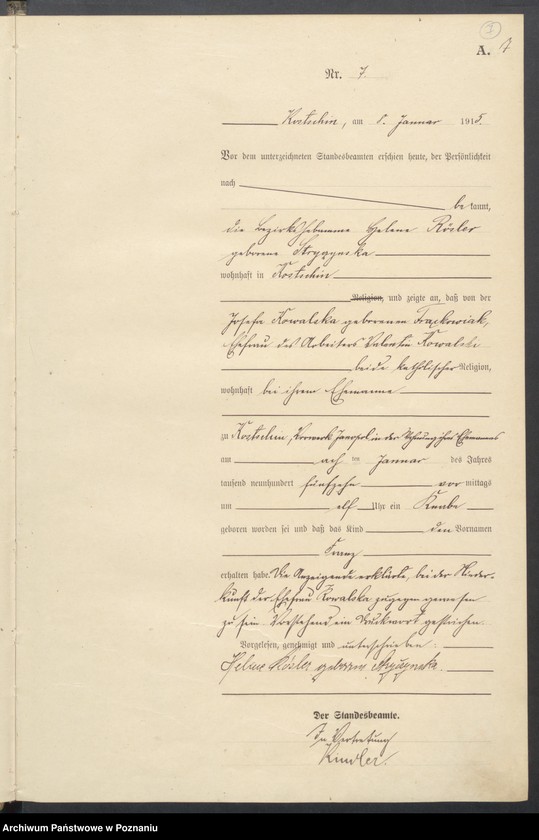 7
A. 7
Nr. 7.
Kostschin, am 8. Januar 1915.
Vor dem unterzeichneten Standesbeamten erschien heute, der Persönlichkeit
nach
bekannt,
die Bezirkshebamme Helene Rösler
geborene
wohnhaft in Kostschin
Religion, und zeigte an, daß von der
Josefa Kowalska geborenen Frąckowiak,
Ehefrau des Arbeiters Valentin Kowalski
beide katholischer Religion,
wohnhaft bei ihrem Ehemanne
zu Kostschin, Vorwerk Janopol in der Wohnung ihres Ehemannes
am acht ten Januar des Jahres
tausend neunhundert fünfzehn vor mittags
um elf Uhr ein Knabe
geboren worden sei und daß das Kind den Vornamen
Franz
erhalten habe. Die Anzeigende erklärte, bei der Nieder-
kunft der Ehefrau Kowalska zugegen gewesen
zu sein. Vorstehend ein Druckwort gestrichen.
Vorgelesen, genehmigt und unterschrieben:
Helene Rösler geborene
Der Standesbeamte.
In Vertretung
Kindler.
Archiwum Państwowe w Poznaniu